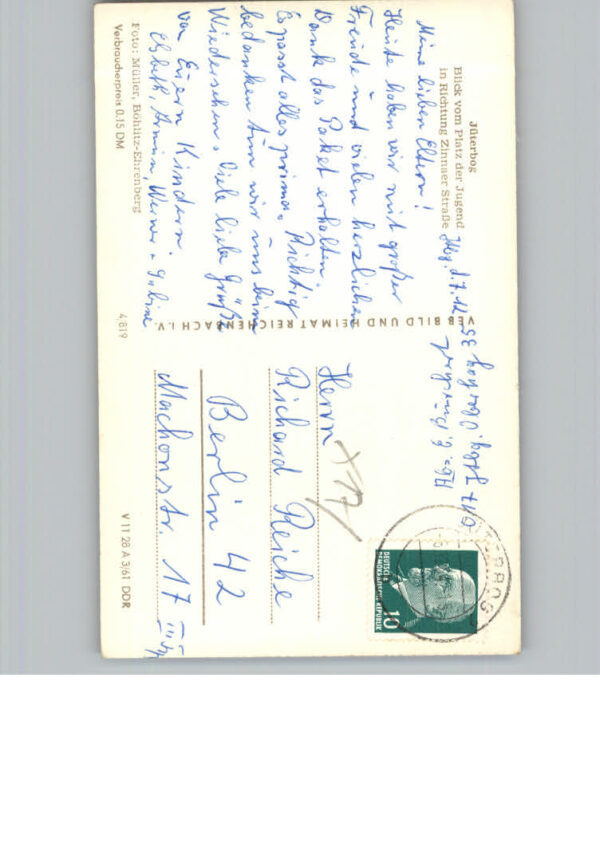 Jüterbog
Blick vom Platz der Jugend
in Richtung Zinnaer Straße
Jbg. d. 7.12.
Meine lieben Eltern!
Heute haben wir mit großer
Freude und vielen herzlichen
Dank das Paket erhalten.
Es passt alles prima. Richtig
bedanken tun wir uns beim
Wiedersehen. Viele liebe Grüße
von Euern Kindern
Elsbeth, Armin, Werner + Sabine
Foto: Müller, Böhlitz-Ehrenberg
Verbraucherpreis 0,15 DM
4/819
VEB BILD UND HEIMAT REICHENBACH I. V.
Abs.
Herrn
Richard Reiche
Berlin 42
Machonstr. 17
V 11 28 A 3/61 DDR
DEUTSCHE
DEMOKRATISCHE REPUBLIK
10